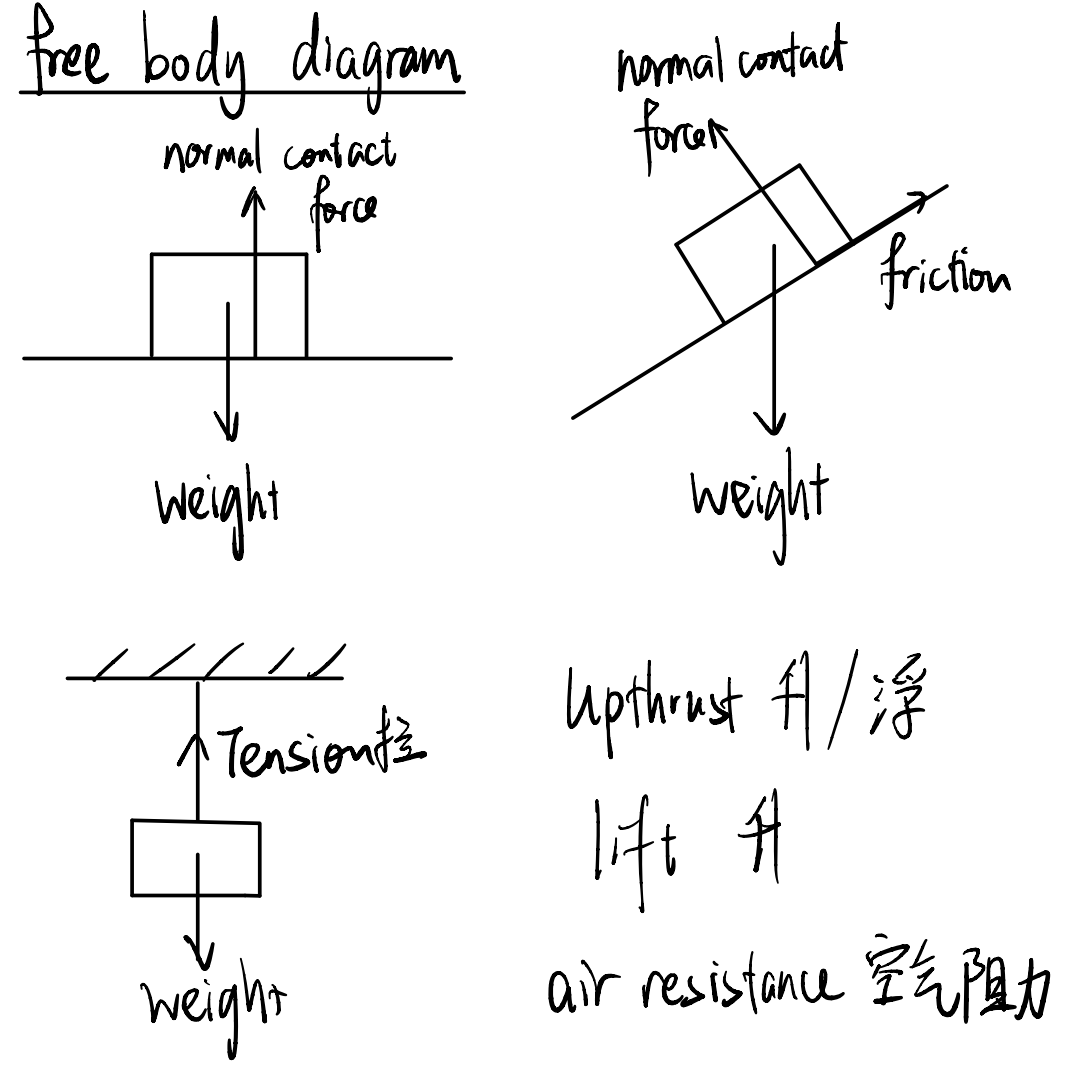 free body diagram
normal contact
force
weight
normal contact
force
friction
weight
Tension
weight
Upthrust 升/浮
lift 升
air resistance 空气阻力